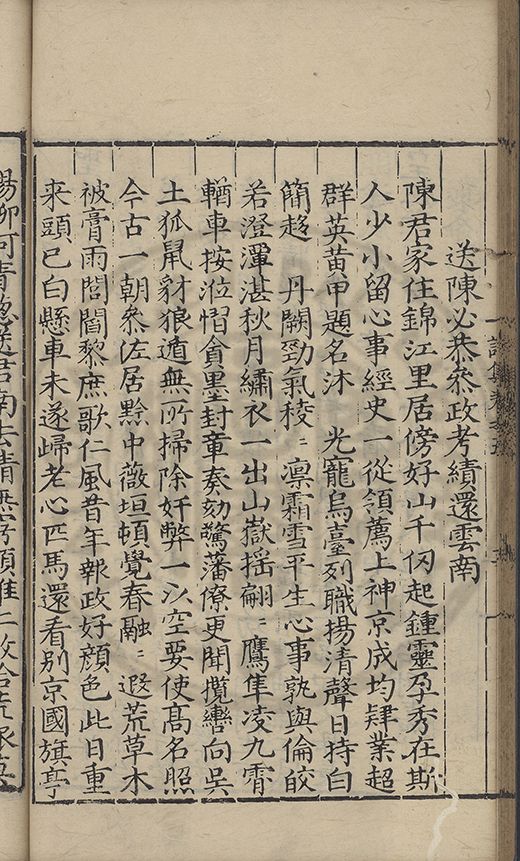 送陳必恭叅政考績還雲南
陳君家住錦江里居傍好山千仞起鍾靈孕秀在斯
人少小留心事經史一從領薦上神京成均肄業超
群英黃甲題名沐　光寵烏臺列職揚清聲日持白
簡趍　丹闕勁氣稜〻凛霜雪平生心事孰與倫皎
若澄潭湛秋月繡衣一出山嶽揺翩〻鷹隼凌九霄
輶車按涖慴貪墨封章奏劾驚藩僚更聞攬轡向吳
土狐鼠豺狼遁無所掃除奸弊一以空要使髙名照
今古一朝叅佐居黔中薇垣頓覺春融〻遐荒草木
被膏雨閭閻黎庶歌仁風昔年報政好顔色此日重
来頭已白懸車未遂歸老心匹馬還看别京國旗亭
楊柳何青
君南去情無